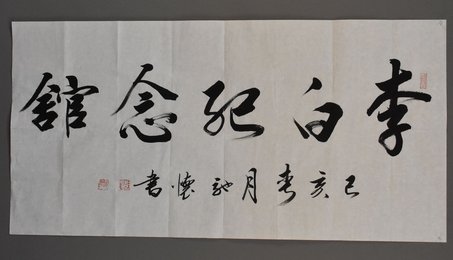 李白紀念舘
己亥春月馳懷書